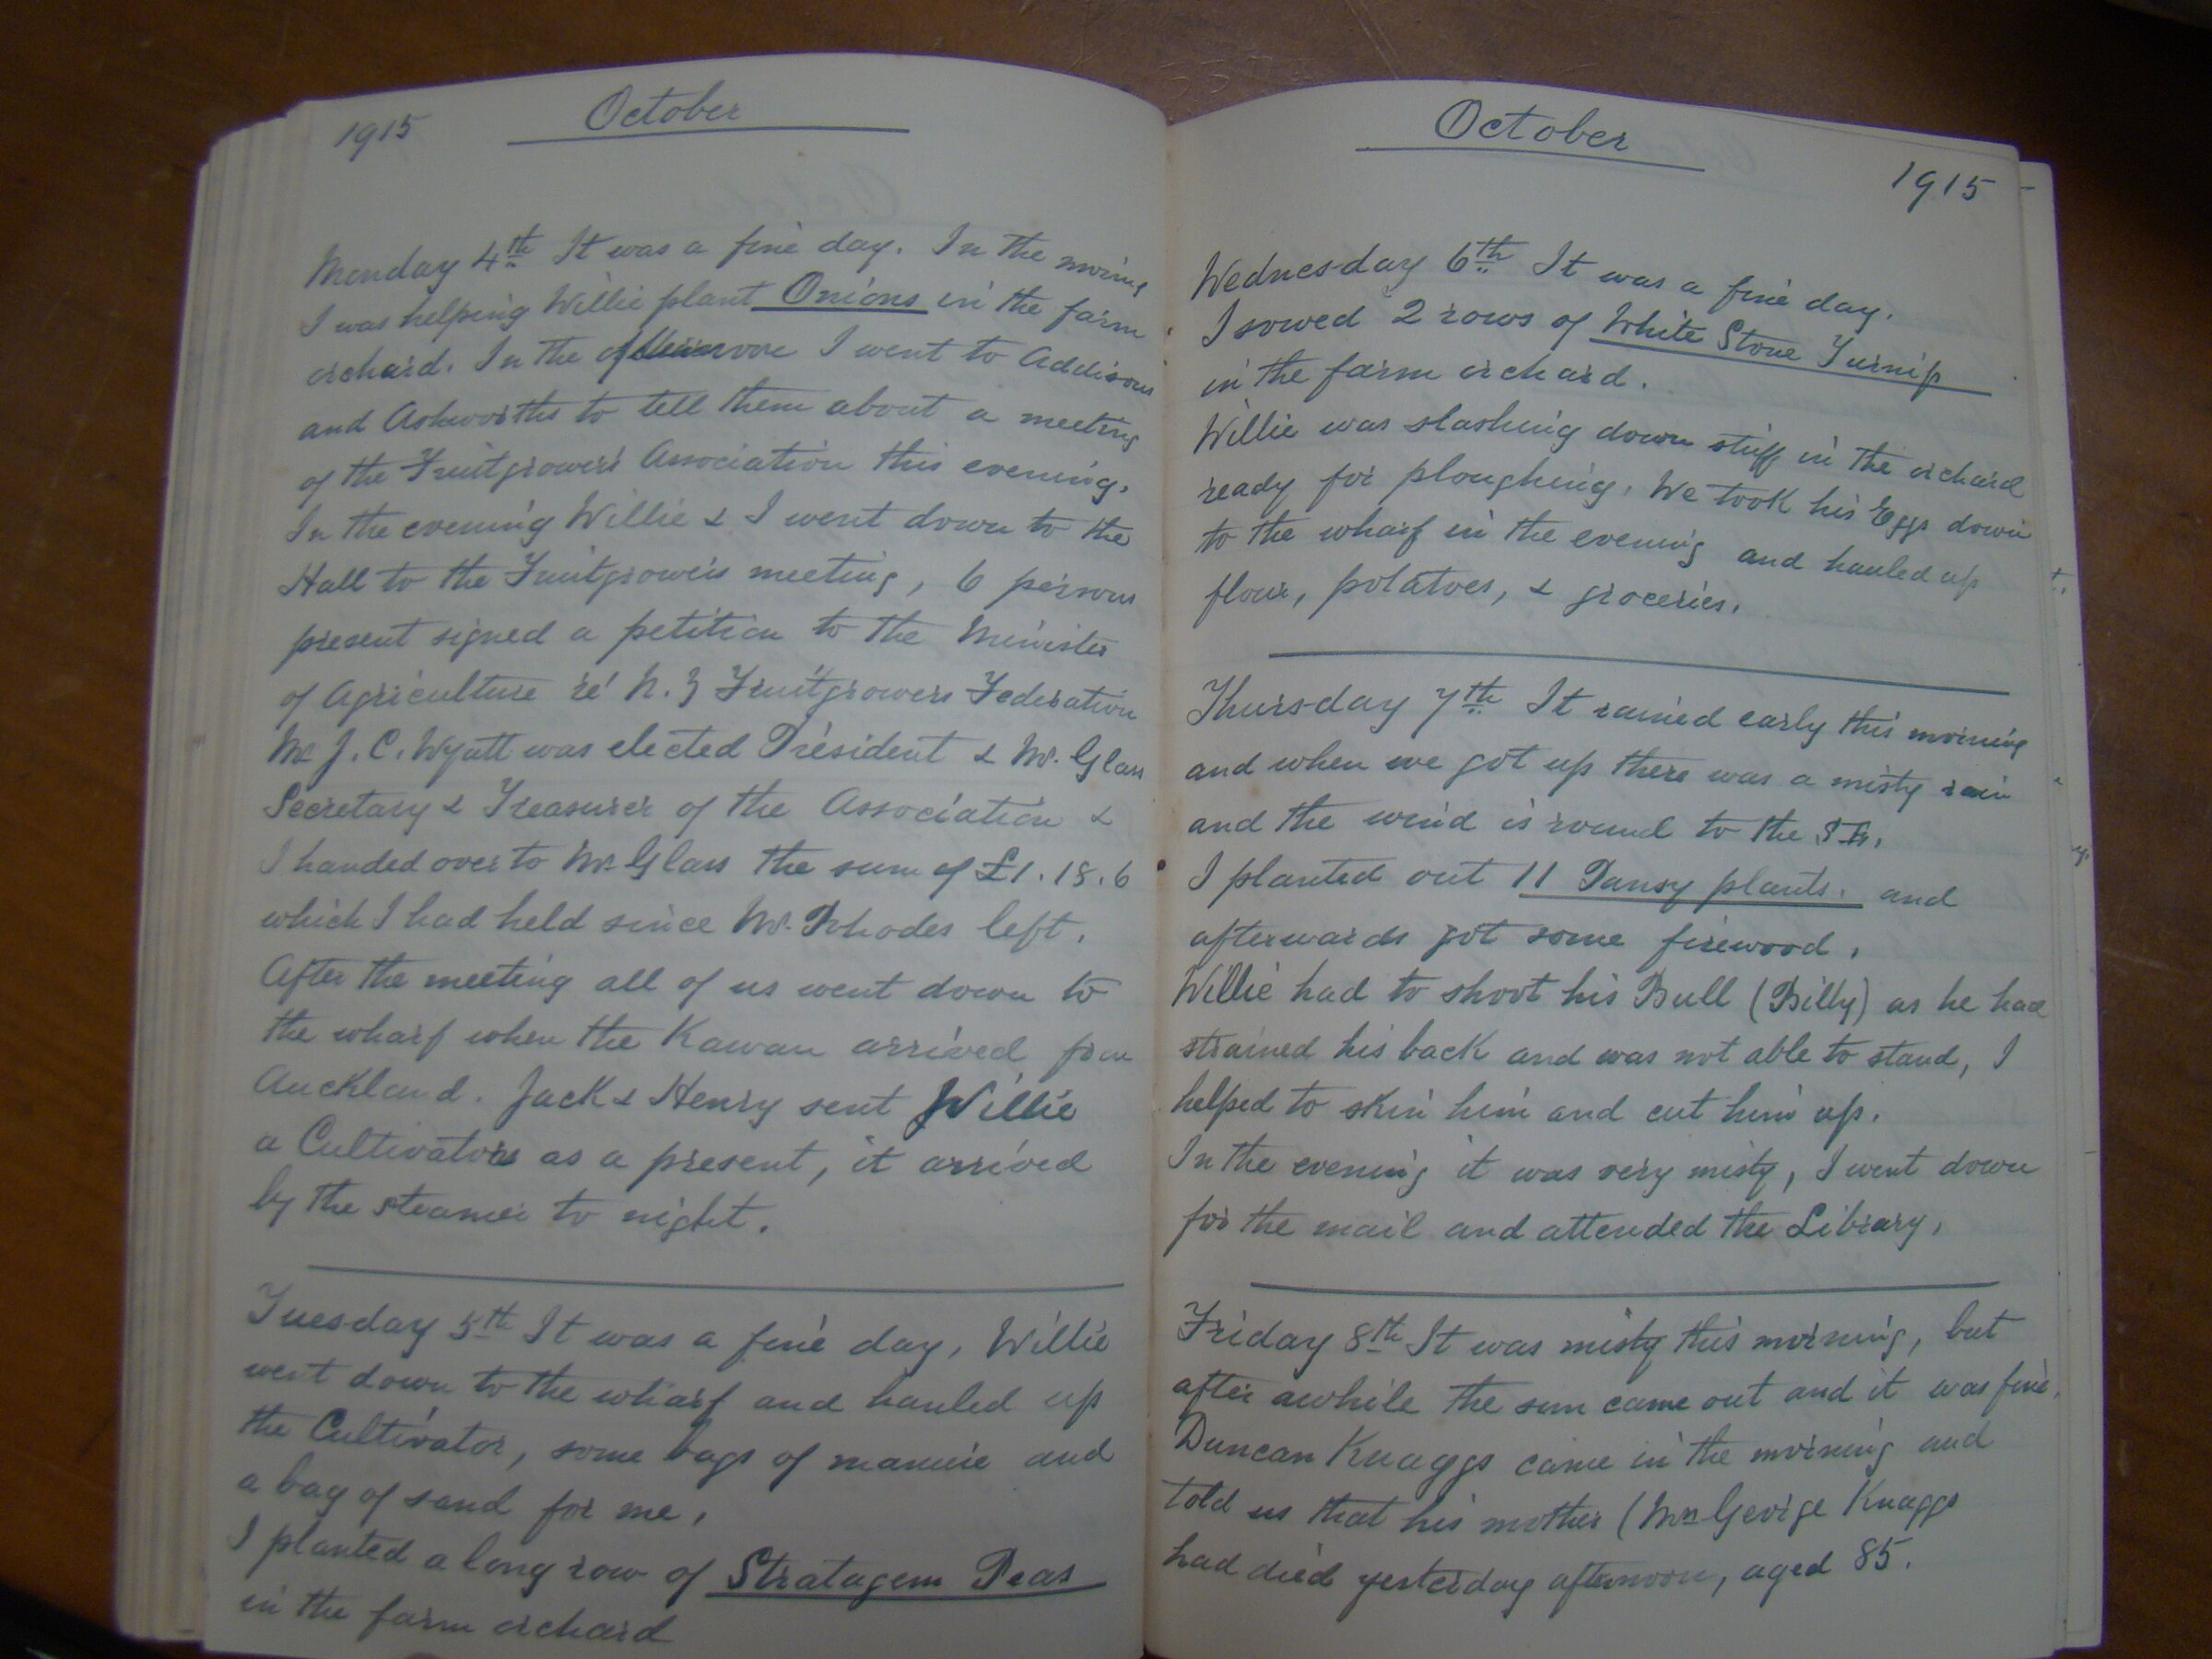 1915 October
Monday 4th It was a fine day. In the morning
I was helping Willie plant Onions in the farm
orchard. In the afternoon I went to Addisons
and Ashworths to tell them about a meeting
of the Fruitgrowers Association this evening.
In the evening Willie & I went down to the
Hall to the Fruitgrowers meeting, 6 persons
present signed a petition to the Minister
of Agriculture re' N.Z Fruitgrowers Federation
Mr J. C. Wyatt was elected President & Mr. Glass
Secretary & Treasurer of the Association &
I handed over to Mr. Glass the sum of £1.18.6
which I had held since Mr. Rhodes left.
After the meeting all of us went down to
the wharf when the Kawau arrived from
Auckland. Jack & Henry sent Willie
a Cultivator as a present, it arrived
by the steamer to night.
Tuesday 5th It was a fine day, Willie
went down to the wharf and hauled up
the Cultivator, some bags of manure and
a bag of sand for me.
I planted a long row of Stratagem Peas
in the farm orchard
October
1915
Wednesday 6th It was a fine day.
I sowed 2 rows of White Stone Turnip
in the farm orchard.
Willie was slashing down stuff in the orchard
ready for ploughing. We took his Eggs down
to the wharf in the evening and hauled up
flour, potatoes, & groceries.
Thursday 7th It rained early this morning
and when we got up there was a misty rain
and the wind is round to the
I planted out 11 Pansy plants. and
afterwards got some firewood.
Willie had to shoot his Bull (Billy) as he had
strained his back and was not able to stand, I
helped to skin him and cut him up.
In the evening it was very misty, I went down
for the mail and attended the Library.
Friday 8th It was misty this morning, but
after awhile the sun came out and it was fine.
Duncan Knaggs came in the morning and
told us that his mother (Mrs George Knaggs
had died yesterday afternoon, aged 85.